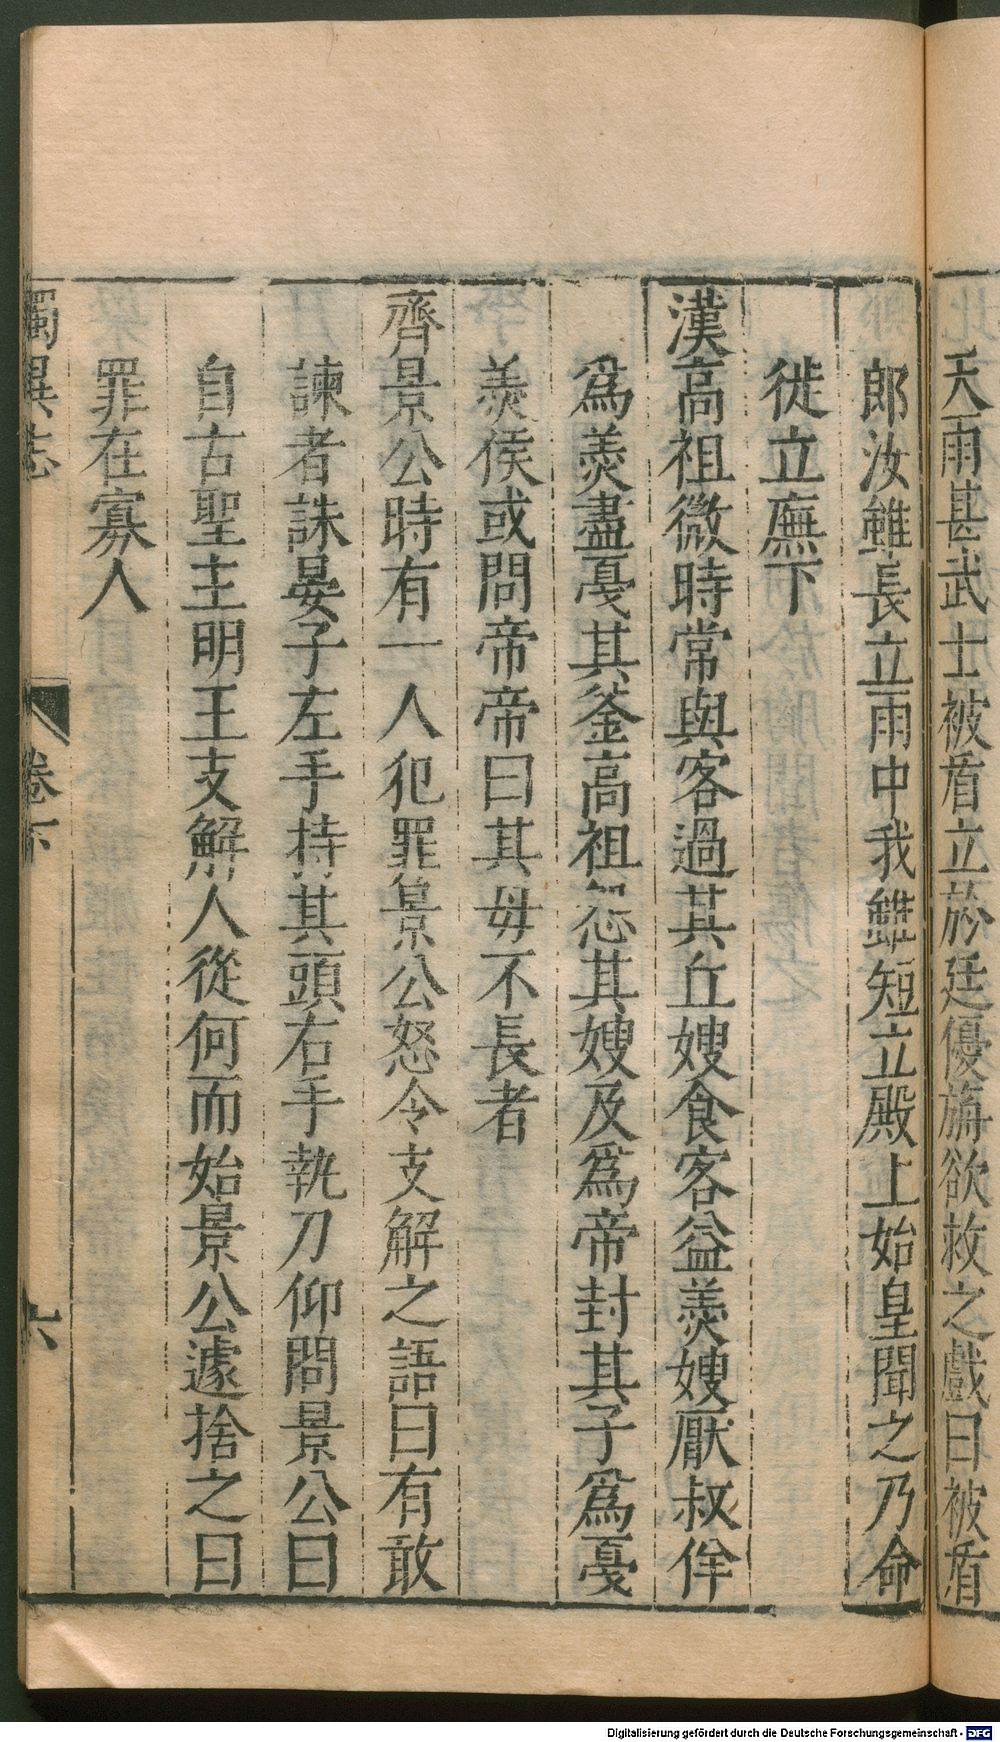 天雨甚武士被盾立於廷優旃欲救之戲曰被盾
郎汝雖長立雨中我雖短立殿上始皇聞之乃命
徙立廡下
漢高祖微時常與客過其丘嫂食客益羹嫂厭叔佯
為羹盡戞其釜高祖怨其嫂及為帝封其子為戞
羹侯或問帝帝曰其母不長者
齊景公時有一人犯罪景公怒令支解之語曰有敢
諫者誅晏子左手持其頭右手執刀仰問景公曰
自古聖主明王支解人從何而始景公遽捨之曰
罪在寡人
獨異志 卷下 六
Digitalisierung gefördert durch die Deutsche Forschungsgemeinschaft - DFG